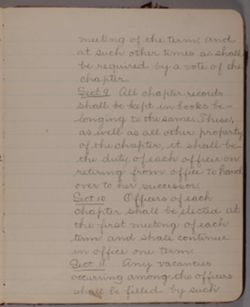 meeting of the term and
at such other times as shall
be required by a vote of the
chapter.
Sect 9 All chapter records
shall be kept in books be-
longing to the same. These,
as well as all other property
of the chapter, it shall be
the duty of each officer on
retiring from office to hand
over to her successor.
Sect 10 Officers of each
chapter shall be elected at
the first meeting of each
term and shall continue
in office one term.
Sect 11 Any vacancies
occurring among the officers
shall be filled by such